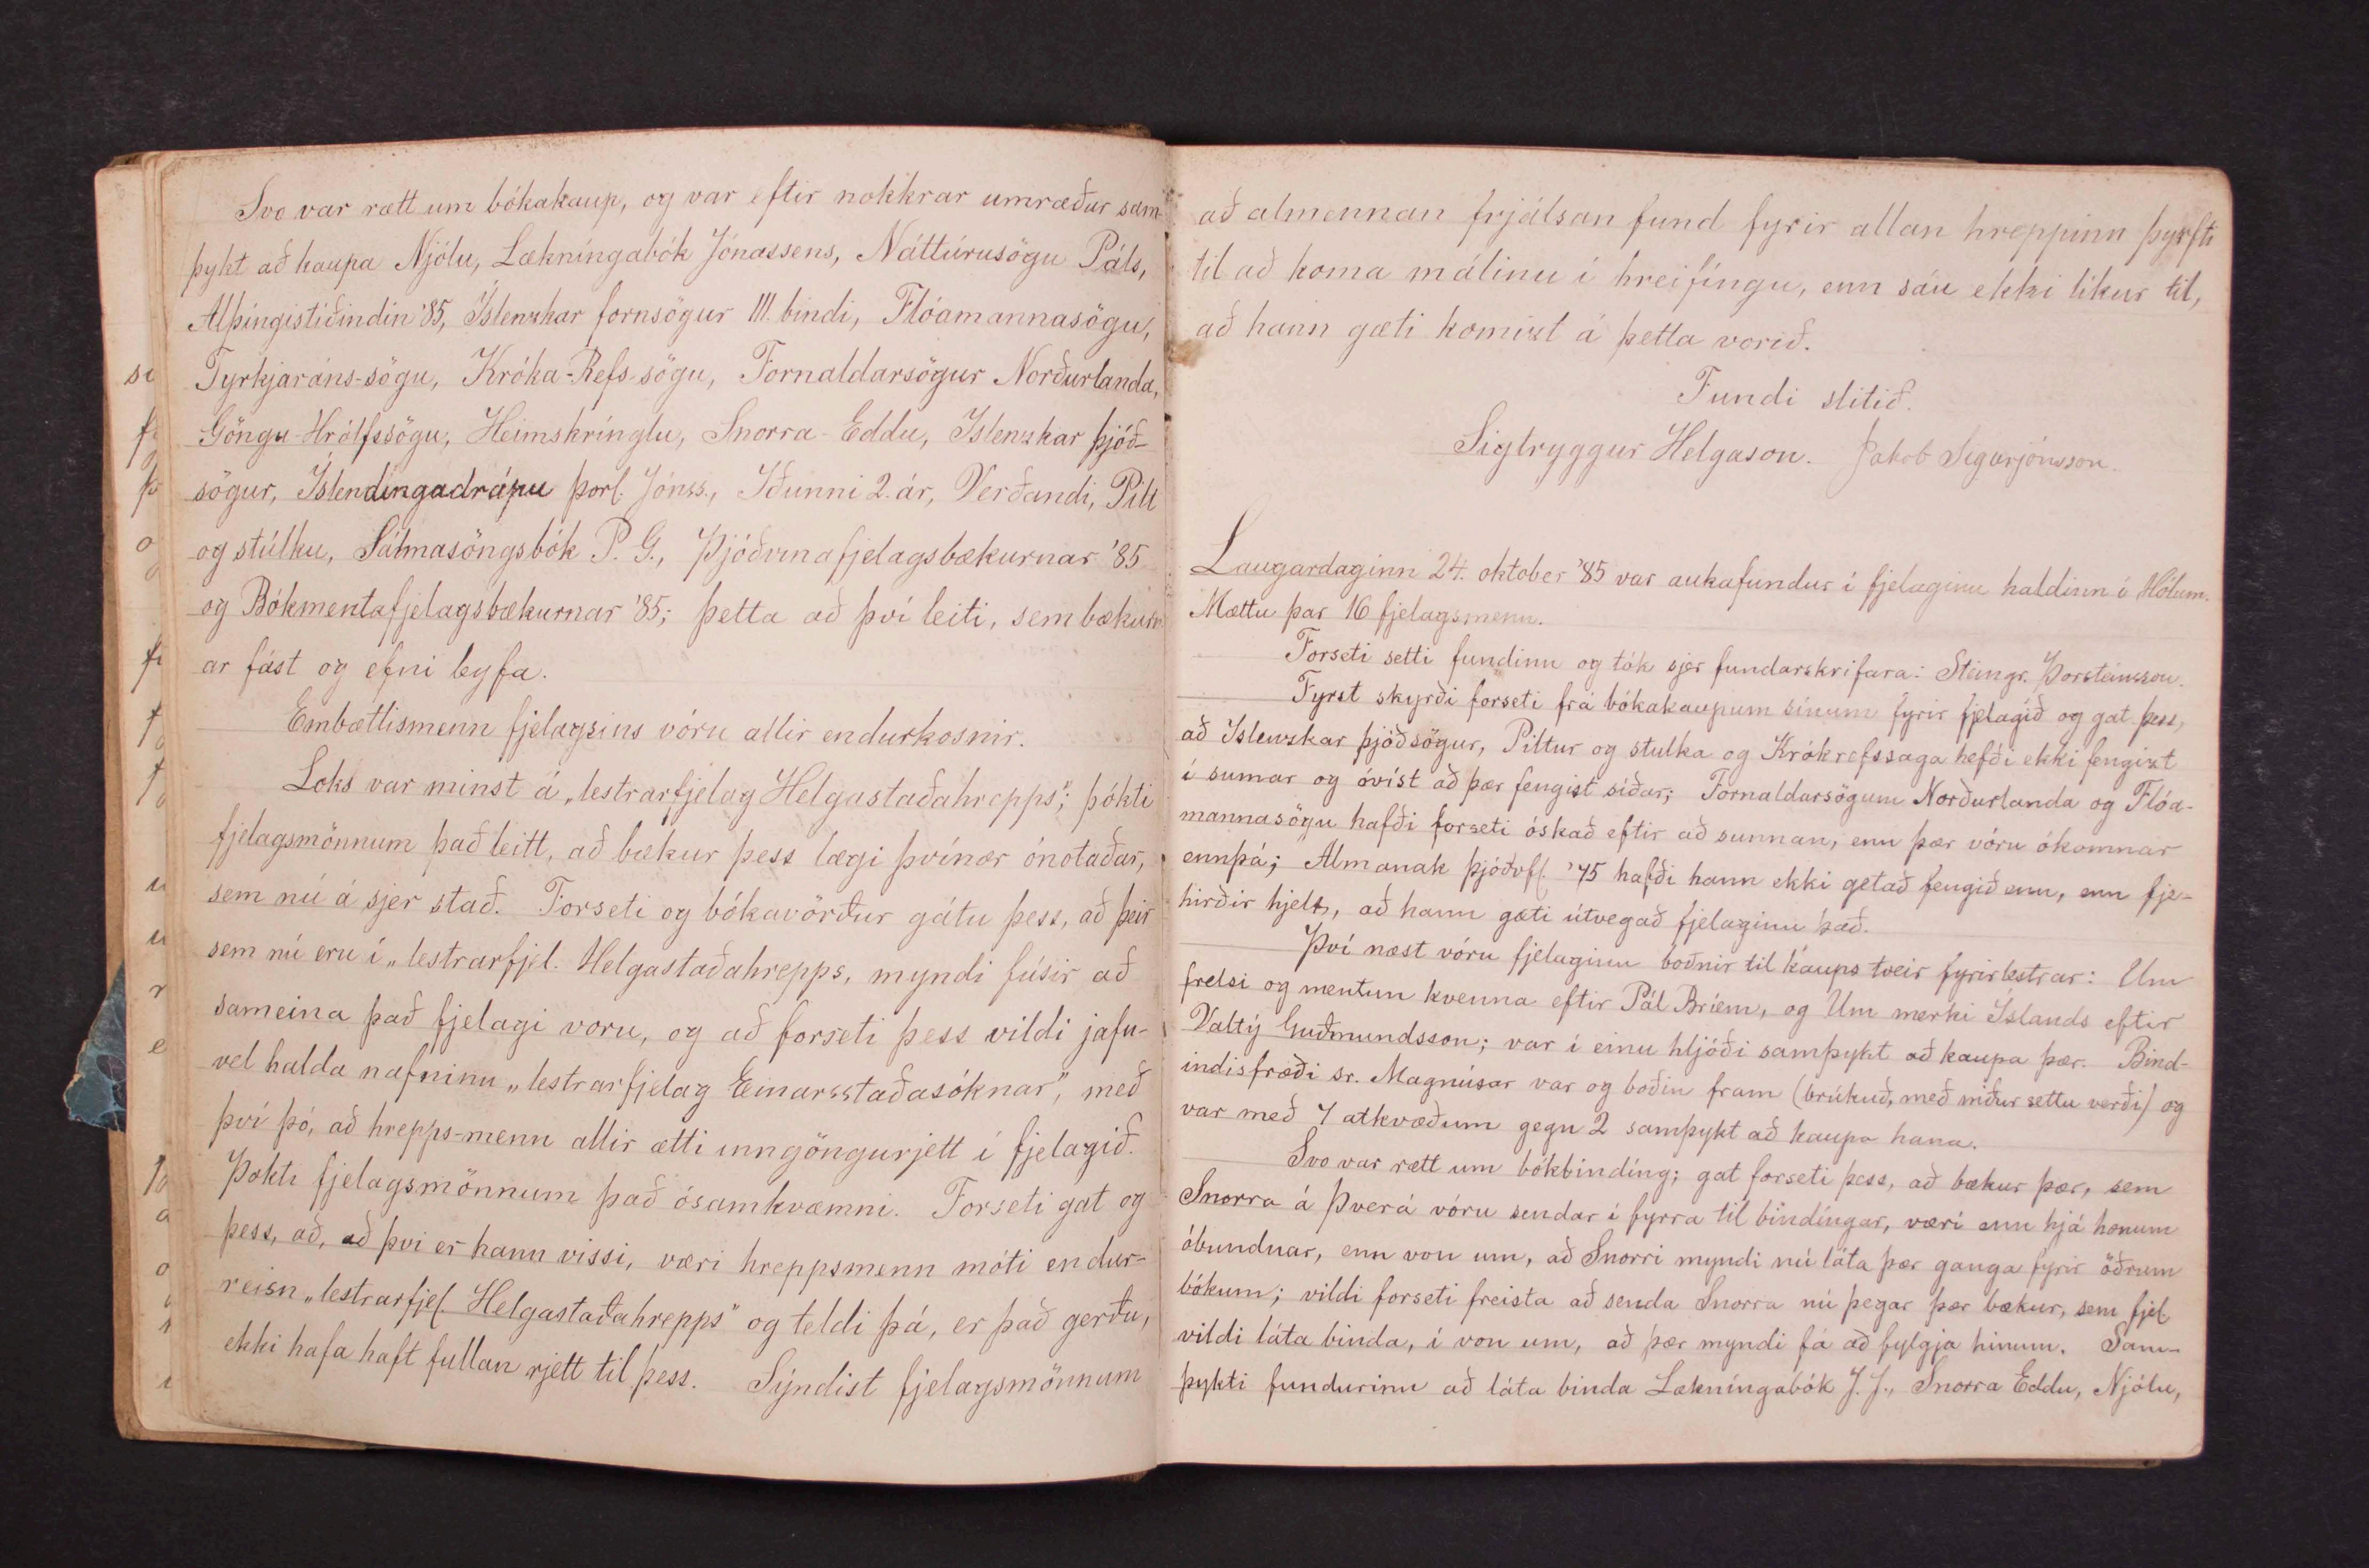 Svo var rætt um bókakaup, og var eftir nokkrar umræður sam-
þykt að kaupa Njólu, Lækníngabók Jónassens, Náttúrusögu Páls,
Alþíngistíðindin '85, Íslenzkar fornsögur III. bindi, Flóamannasögu,
Tyrkjaráns-sögu, Króka-Refs-sögu, Fornaldarsögur Norðurlanda,
Göngu-Hrólfssögu, Heimskrínglu, Snorra-Eddu, Íslenzkar þjóð-
sögur, Íslendíngadrápu Þorl. Jónss., Iðunni 2. ár, Verðandi, Pilt
og stúlku, Sálmasöngsbók P. G., Þjóðvinafjelagsbækurnar '85
og Bókmentafjelagsbækurnar '85; þetta að því leiti, sem bækurn
ar fást og efni leyfa.
Embættismenn fjelagsins vóru allir endurkosnir.
Loks var minst á „lestrarfjelag Helgastaðahrepps"; þókti
fjelagsmönnum það leitt, að bækur þess lægi þvínær ónotaðar,
sem nú á sjer stað. Forseti og bókavörður gátu þess, að þeir
sem nú eru í „lestrarfjel. Helgastaðahrepps, myndi fúsir að
sameina það fjelagi voru, og að forseti þess vildi jafn-
vel halda nafninu „lestrarfjelag Einarsstaðasóknar", með
því þó, að hrepps-menn allir ætti inngöngurjett í fjelagið.
Þókti fjelagsmönnum það ósamkvæmni. Forseti gat og
þess, að, að því er hann vissi, væri hreppsmenn móti endur-
reisn „lestrarfjel Helgastaðahrepps" og teldi þá, er það gerðu,
ekki hafa haft fullan rjett til þess. Sýndist fjelagsmönnum
að almennan frjálsan fund fyrir allan hreppinn þyrfti
til að koma málinu í hreifíngu, enn sáu ekki líkur til,
að hann gæti komizt á þetta vorið.
Fundi slitið.
Sigtryggur Helgason. Jakob Sigurjónsson.
Laugardaginn 24. oktober '85 var aukafundur í fjelaginu haldinn í Hólum.
Mættu þar 16 fjelagsmenn.
Forseti setti fundinn og tók sjer fundarskrifara: Steingr. Þorsteinsson.
Fyrst skýrði forseti frá bókakaupum sínum fyrir fjelagið og gat þess,
að Íslenzkar þjóðsögur, Piltur og stulka og Krókrefssaga hefði ekki fengizt
í sumar og óvíst að þær fengist síðar; Fornaldarsögum Norðurlanda og Flóa-
mannasögu hafði forseti óskað eftir að sunnan, enn þær vóru ókomnar
ennþá; Almanak þjóðvfl. '75 hafði hann ekki getað fengið enn, enn fje-
hirðir hjelt, að hann gæti útvegað fjelaginu það.
Því næst vóru fjelaginu boðnir til kaups tveir fyrirlestrar: Um
frelsi og mentun kvenna eftir Pál Bríem, og Um merki Íslands eftir
Valtý Guðmundsson; var í einu hljóði samþykt að kaupa þær. Bind-
indisfræði sr. Magnúsar var og boðin fram (brúkuð, með niður settu verði) og
var með 7 atkvæðum gegn 2 samþykt að kaupa hana.
Svo var rætt um bókbindíng; gat forseti þess, að bækur þær, sem
Snorra á Þverá vóru sendar í fyrra til bindíngar, væri enn hjá honum
óbundnar, enn von um, að Snorri myndi nú láta þær ganga fyrir öðrum
bókum; vildi forseti freista að senda Snorra nú þegar þær bækur, sem fjel
vildi láta binda, í von um, að þær myndi fá að fylgja hinum. Sam-
þykti fundurinn að láta binda Lækníngabók J. J., Snorra Eddu, Njólu,